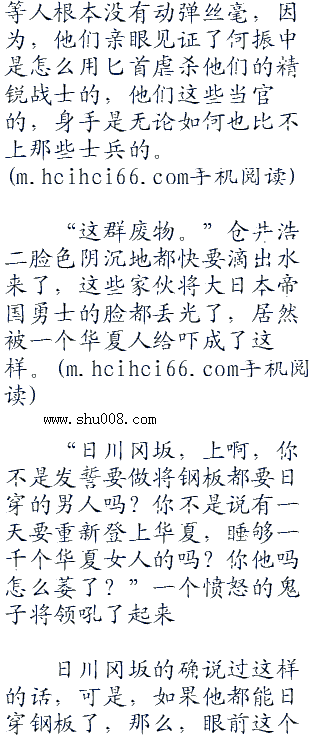 等人根本没有动弹丝毫，因
为，他们亲眼见证了何振中
是怎么用匕首虐杀他们的精
锐战士的，他们这些当官
的，身手是无论如何也比不
上那些士兵的。
(m.hcihci66.com手机阅读)
“这群废物。”仓井浩
二脸色阴沉地都快要滴出水
来了，这些家伙将大日本帝
国勇士的脸都丢光了，居然
被一个华夏人给吓成了这
样。(m.hcihci66.com手机阅
读)
www.shu008.com
“日川冈坂，上啊，你
不是发誓要做将钢板都要日
穿的男人吗？你不是说有一
天要重新登上华夏，睡够一
千个华夏女人的吗？你他吗
怎么萎了？”一个愤怒的鬼
子将领吼了起来
日川冈坂的确说过这样
的话，可是，如果他都能日
穿钢板了，那么，眼前这个